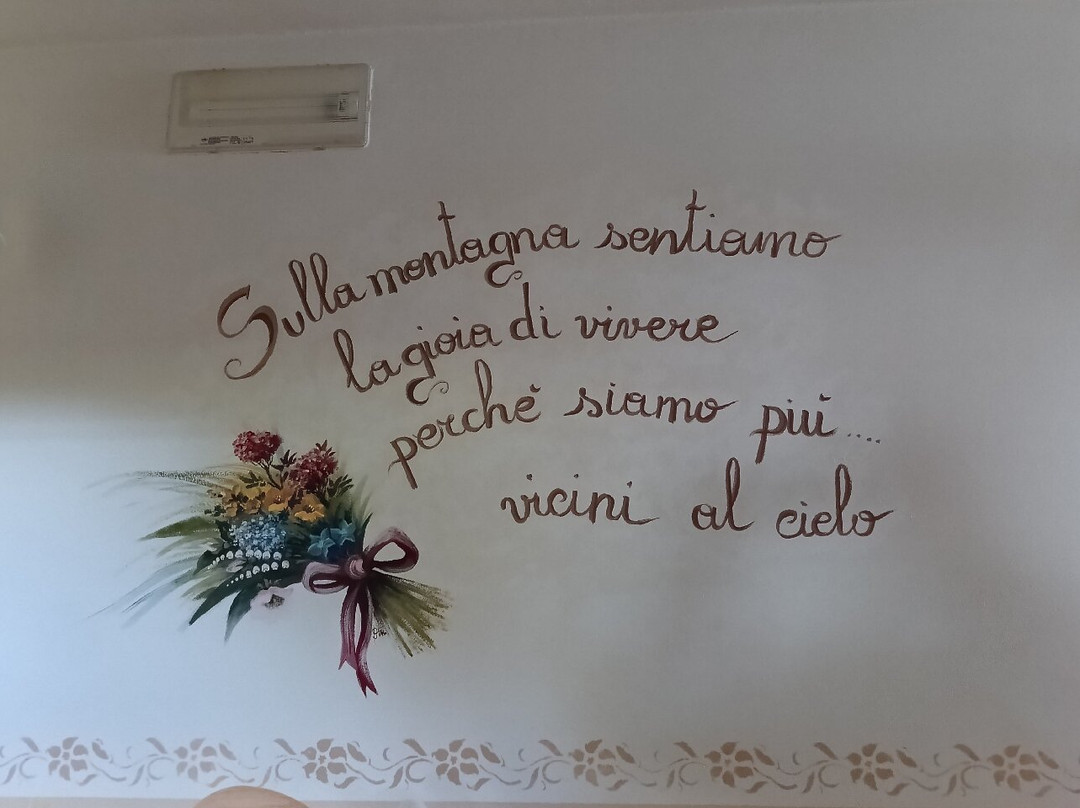 Sulla montagna sentiamo
la gioia di vivere
perchè siamo più....
vicini al cielo